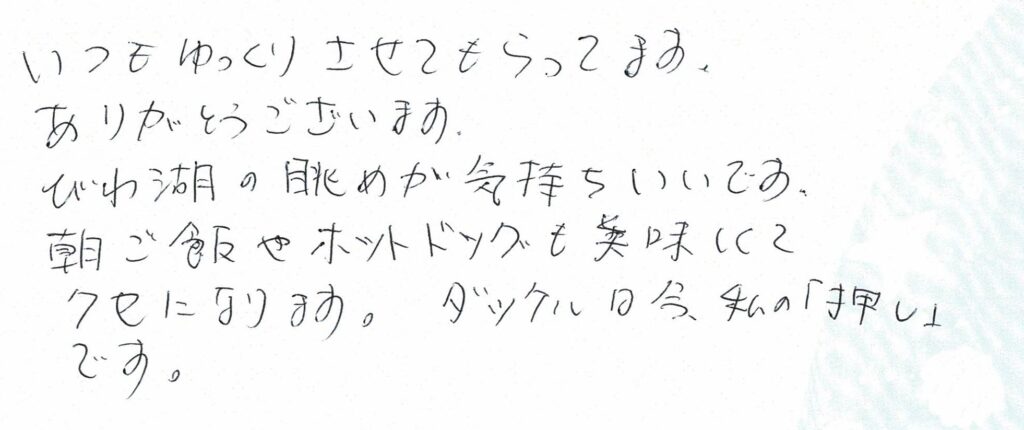 いつもゆっくりさせてもらってます。
ありがとうございます。
びわ湖の眺めが気持ちいいです。
朝ご飯やホットドッグも美味しくて
クセになります。 ダッケルは今、私の「押し」
です。